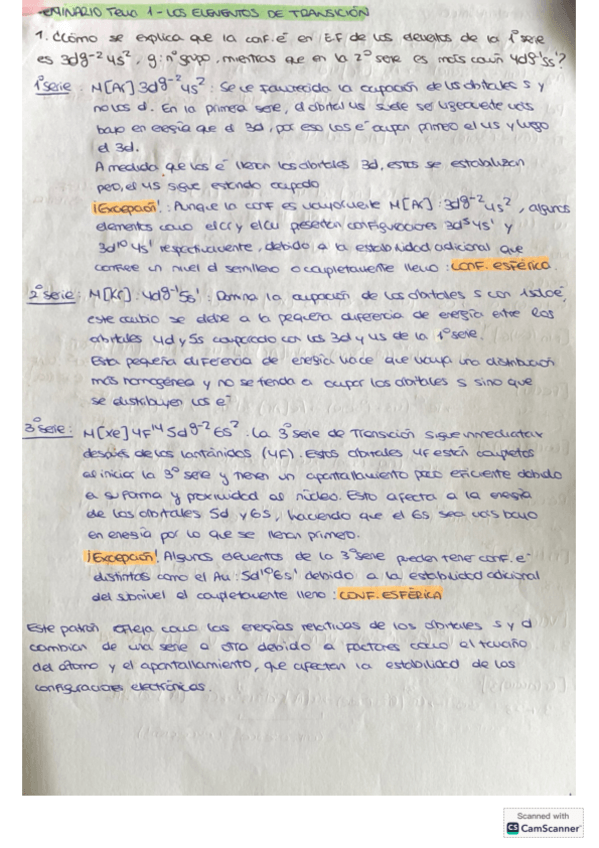 SEMINARIO TEMA 1 - LOS ELEMENTOS DE TRANSICIÓN
1. ¿Cómo se explica que la conf. e⁻ en EF de los elementos de la 1ª serie
es 3d^g-2 4s², g: nº grupo, mientras que en la 2ª serie es más común 4d^g-1 5s¹?
1ª serie: M[Ar] 3d^g-2 4s²: Se ve favorecida la ocupación de los orbitales s y
no los d. En la primera serie, el orbital 4s suele ser ligeramente más
bajo en energía que el 3d, por eso los e⁻ ocupan primero el 4s y luego
el 3d.
A medida que los e⁻ llenan los orbitales 3d, estos se estabilizan
pero, el 4s sigue estando ocupado
¡Excepción!: Aunque la conf es mayormente M[Ar]: 3d^g-2 4s², algunos
elementos como el Cr y el Cu presentan configuraciones 3d⁵4s¹ y
3d¹⁰4s¹ respectivamente, debido a la estabilidad adicional que
confiere un nivel d semilleno o completamente lleno: CONF. ESFÉRICA
2ª serie: M[Kr]: 4d^g-1 5s¹: Domina la ocupación de los orbitales s con 1 solo e⁻,
este cambio se debe a la pequeña diferencia de energía entre los
orbitales 4d y 5s comparado con los 3d y 4s de la 1ª serie.
Esta pequeña diferencia de energía hace que haya una distribución
más homogénea y no se tenda a ocupar los orbitales s sino que
se distribuyen los e⁻
3ª serie: M[Xe] 4f¹⁴ 5d^g-2 6s²: La 3ª serie de transición sigue inmediatam
después de los lantánidos (4f). Estos orbitales 4f están completos
al iniciar la 3ª serie y tienen un apantallamiento poco eficiente debido
a su forma y proximidad al núcleo. Esto afecta a la energía
de los orbitales 5d y 6s, haciendo que el 6s sea más bajo
en energía por lo que se llenan primero.
¡Excepción! Algunos elementos de la 3ª serie pueden tener conf. e⁻
distintas como el Au: 5d¹⁰6s¹ debido a la estabilidad adicional
del subnivel d completamente lleno: CONF. ESFÉRICA
Este patrón refleja como las energías relativas de los orbitales s y d
cambian de una serie a otra debido a factores como el tamaño
del átomo y el apantallamiento, que afectan la estabilidad de las
configuraciones electrónicas.
Scanned with
CS CamScanner